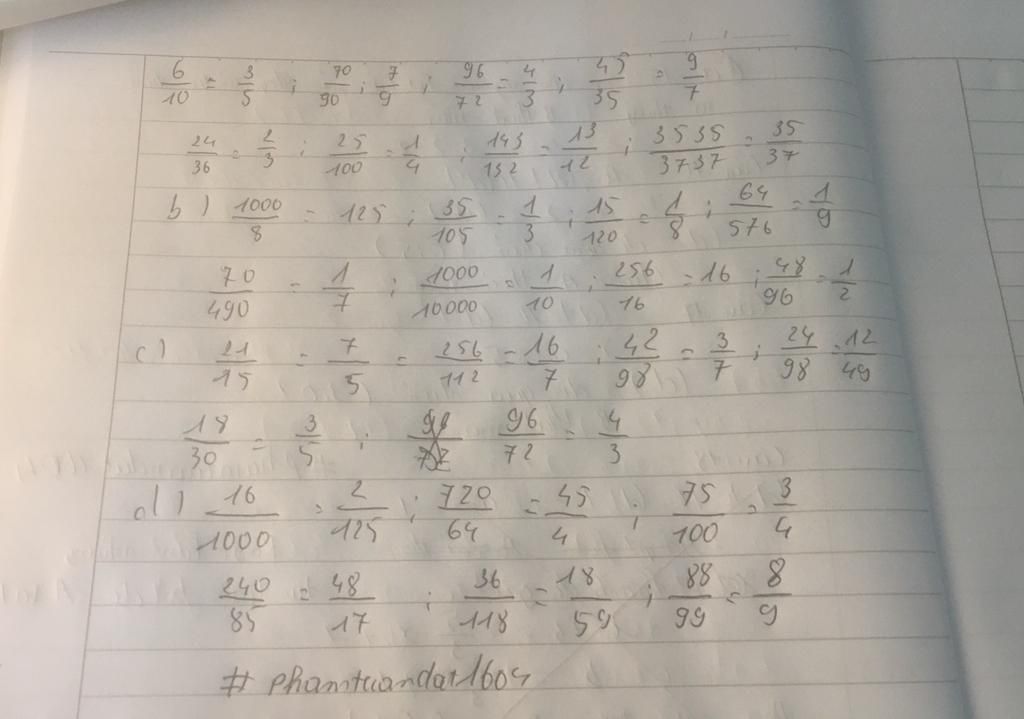 6/10 = 3/5 ; 70/90 ; 7/9 ; 96/72 = 4/3 ; 45/35 = 9/7
24/36 = 2/3 ; 25/100 = 1/4 ; 143/132 = 13/12 ; 3535/3737 = 35/37
b) 1000/8 = 125 ; 35/105 = 1/3 ; 15/120 = 1/8 ; 64/576 = 1/9
70/490 = 1/7 ; 1000/10000 = 1/10 ; 256/16 = 16 ; 48/96 = 1/2
c) 21/15 = 7/5 = 256/112 = 16/7 ; 42/98 = 3/7 ; 24/98 = 12/49
18/30 = 3/5 ; 96/72 = 4/3
d) 16/1000 = 2/125 ; 720/64 = 45/4 ; 75/100 = 3/4
240/85 = 48/17 ; 36/118 = 18/59 ; 88/99 = 8/9
# phamtuandat1604